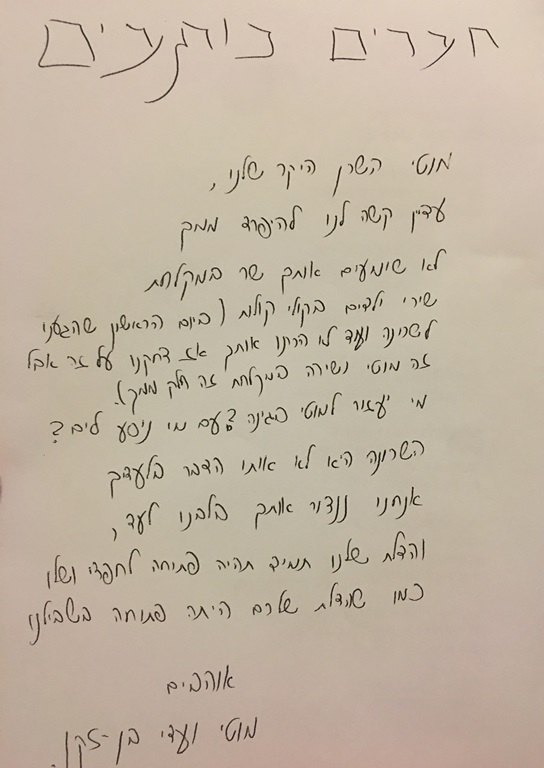 חברים כותבים
מוטי השכן היקר שלנו,
עדיין קשה לנו להיפרד ממך
לא שומעים אותך שר במקלחת
שירי ילדים בקולי קולות (ביום הראשון שהגענו
לשכונה ועוד לא הכרנו אותך אז צחקנו על זה אבל
זה מוטי ושירה במקלחת זה חלק ממך).
מי יעזור למוטי בגינה? עם מי ניסע לים?
השכונה היא לא אותו הדבר בלעדיך
אנחנו ננצור אותך בלבנו לעד,
והדלת שלנו תמיד תהיה פתוחה לחפצי ושלו
כמו שהדלת שלכם היתה פתוחה בשבילנו
אוהבים
מוטי ועדי בן-זקן.